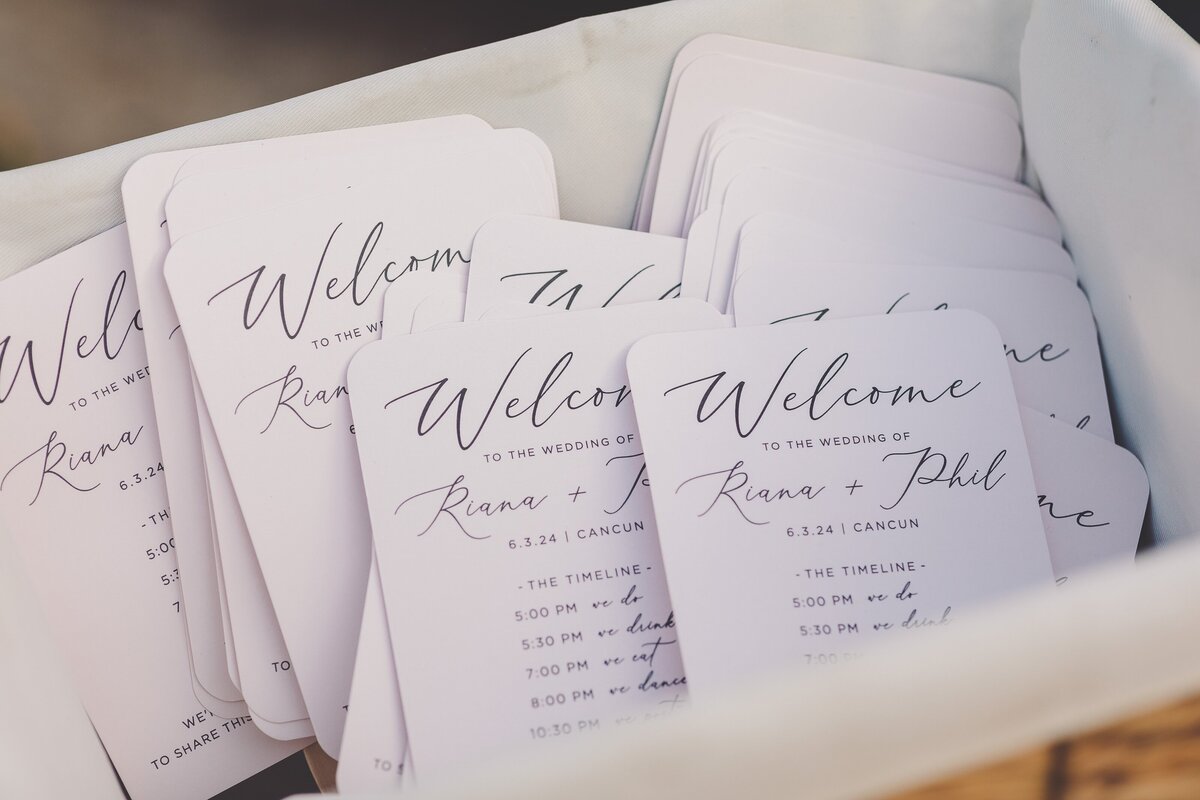 Welcome
TO THE WEDDING OF
Riana + Phil
6.3.24 | CANCUN
- THE TIMELINE -
5:00 PM we do
5:30 PM we drink
7:00 PM
Welcom
TO THE WEDDING OF
Riana +
6.3.24 | CANCUN
- THE TIMELINE -
5:00 PM we do
5:30 PM we drink
7:00 PM we eat
8:00 PM we dance
10:30 PM we
Welcom
TO THE WE
Rian
6
TO
Welc
TO THE WED
Riana
6.3.24
- TH
5:00
5:3
7
WE'
TO SHARE THIS
TO S
W
ne
ne